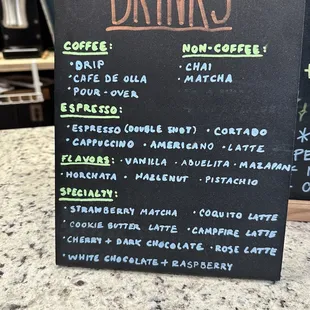 DRINKS
COFFEE: NON-COFFEE:
• DRIP • CHAI
• CAFE DE OLLA • MATCHA
• POUR-OVER
ESPRESSO:
• ESPRESSO (DOUBLE SHOT) • CORTADO
• CAPPUCCINO • AMERICANO • LATTE
FLAVORS: • VANILLA • ABUELITA • MAZAPAN
• HORCHATA • HAZLENUT • PISTACHIO
SPECIALTY:
• STRAWBERRY MATCHA • COQUITO LATTE
• COOKIE BUTTER LATTE • CAMPFIRE LATTE
• CHERRY + DARK CHOCOLATE • ROSE LATTE
• WHITE CHOCOLATE + RASPBERRY